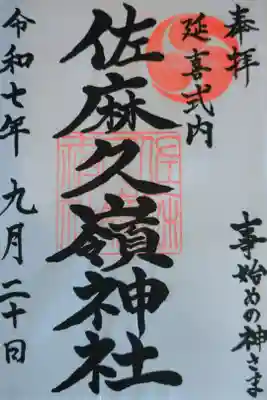 奉拝
延喜式内
事始めの神さま
佐麻久嶺神社
令和七年 九月 二十日